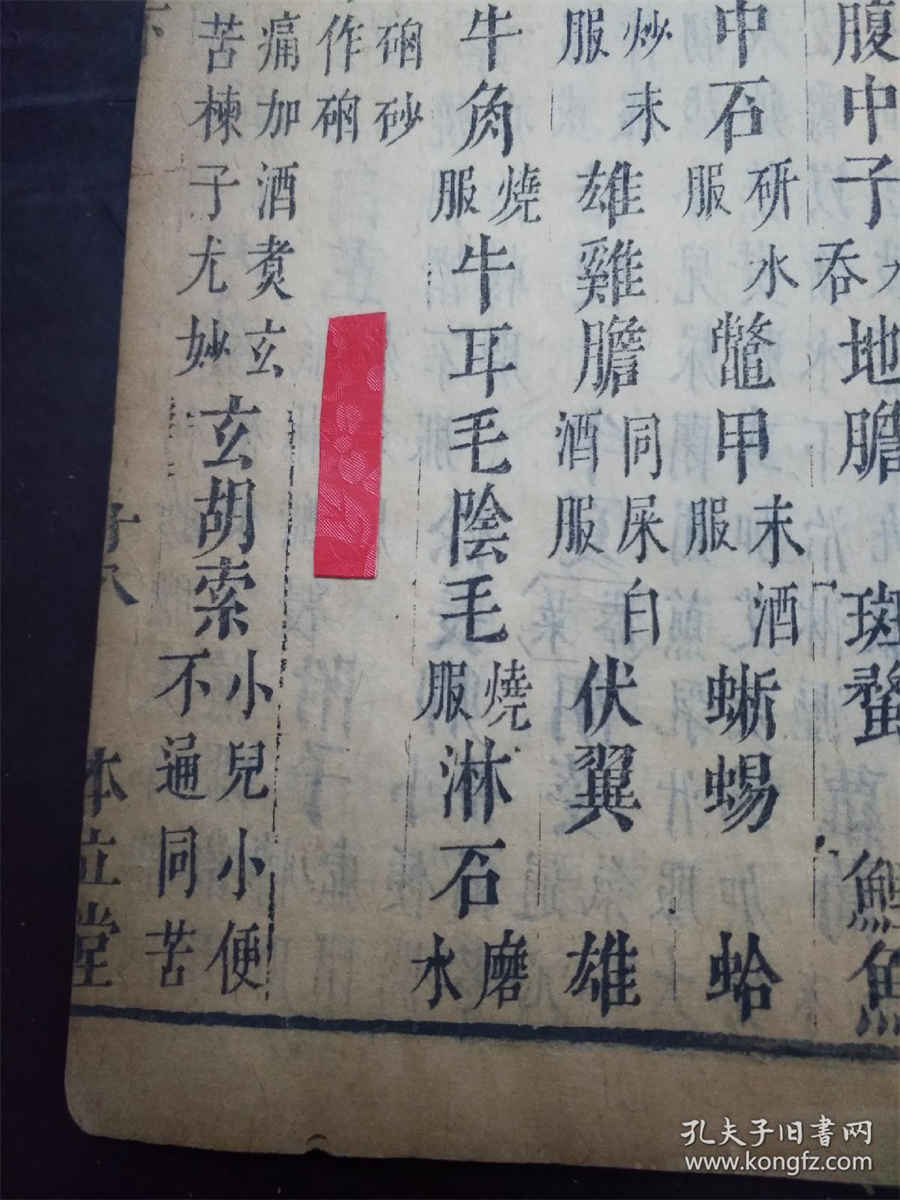 腹中子吞水地膽 斑蝥 鯉魚
中石研水服鼈甲末酒服 蜥蜴 蛤
炒末服 雄雞膽同屎白酒服 伏翼 雄
牛角燒服牛耳毛陰毛燒服淋石磨水
硇砂
作硇
痛加酒煮玄玄胡索小兒小便
苦楝子尤妙不通同苦
本立堂
孔夫子旧书网
www.kongfz.com